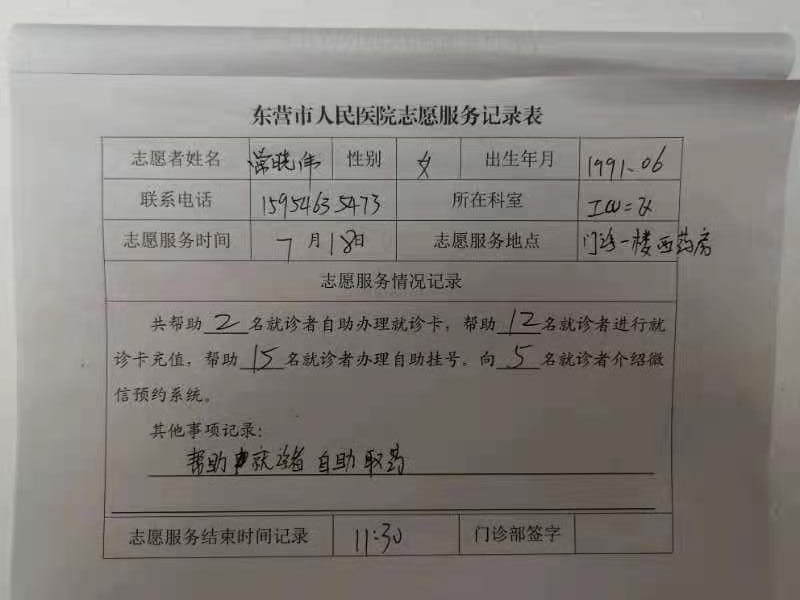 东营市人民医院志愿服务记录表
志愿者姓名 常晓伟 性别 女 出生年月 1991.06
联系电话 15954635473 所在科室 ICU二区
志愿服务时间 7月18日 志愿服务地点 门诊一楼西药房
志愿服务情况记录
共帮助2名就诊者自助办理就诊卡，帮助12名就诊者进行就
诊卡充值，帮助15名就诊者办理自助挂号。向5名就诊者介绍微
信预约系统。
其他事项记录：
帮助就诊者自助取药
志愿服务结束时间记录 11:30 门诊部签字